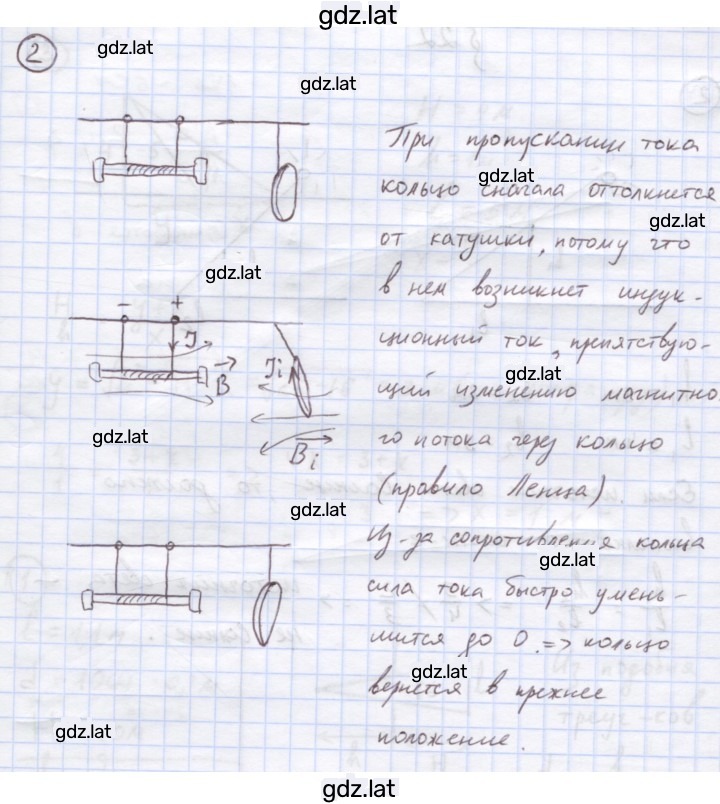 gdz.lat
2
gdz.lat
gdz.lat
При пропускании тока
gdz.lat
кольцо сначала оттолкнется
gdz.lat
от катушки, потому что
gdz.lat
в нем возникнет индук-
- +
ционный ток, препятствую-
I
gdz.lat
B
Ii
щий изменению магнитно
gdz.lat
го потока через кольцо
Bi
(правило Ленца).
gdz.lat
Из-за сопротивления кольца
gdz.lat
сила тока быстро умень-
шится до 0. => кольцо
gdz.lat
вернется в прежнее
gdz.lat
положение.
gdz.lat